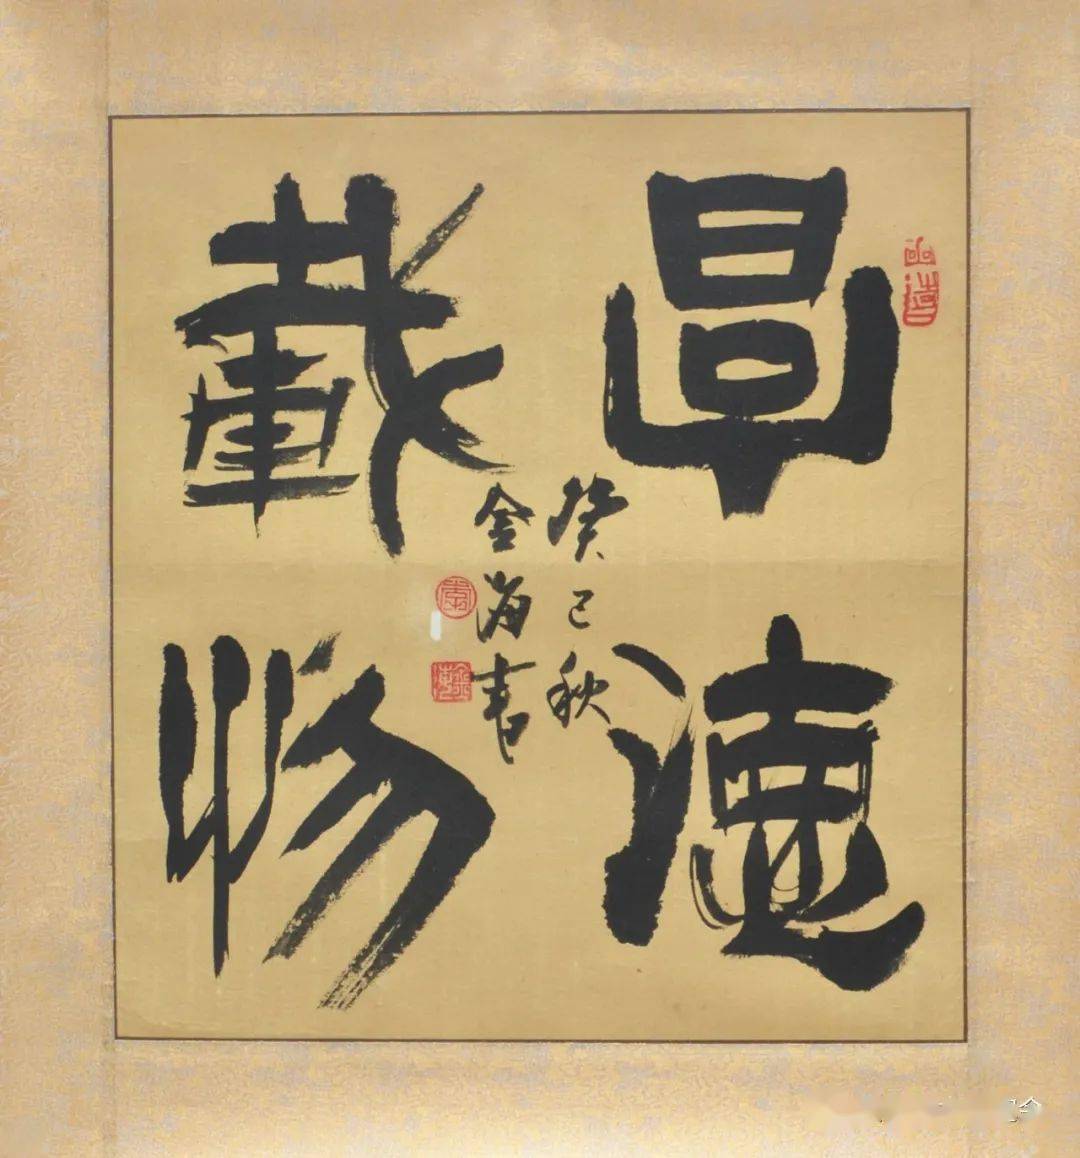 厚德
載物
癸巳秋
金海書